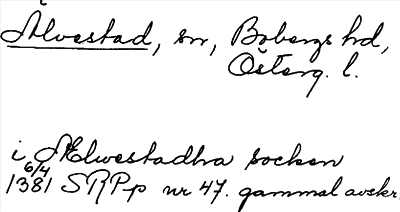 Älvestad, sn, Bobergs hd,
Österg. l.
i Ælwestadha socken
6/4
1381 SRPp nr 47. gammal avskr.